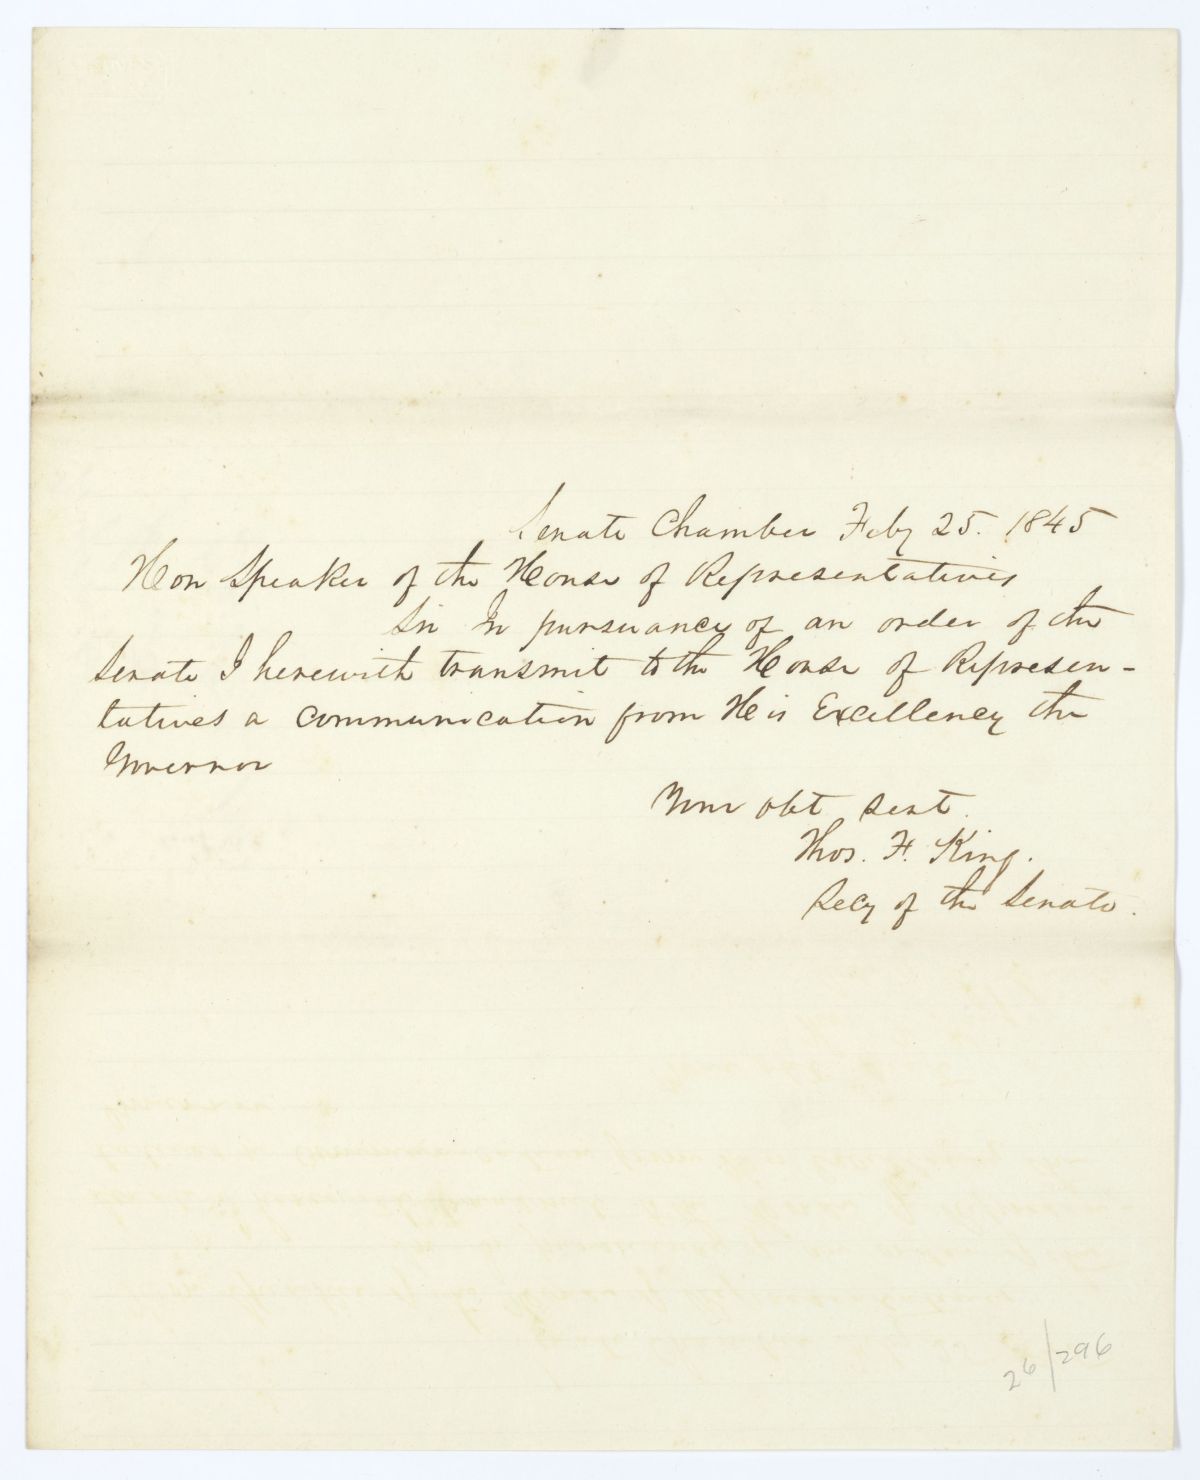 Senate Chamber Feby 25. 1845
Hon Speaker of the House of Representatives
Sir In pursuancy of an order of the
Senate I herewith transmit to the House of Represen-
tatives a communication from His Excellency the
Governor
Your obt sert.
Thos. F. King.
Secy of the Senate.
26/296